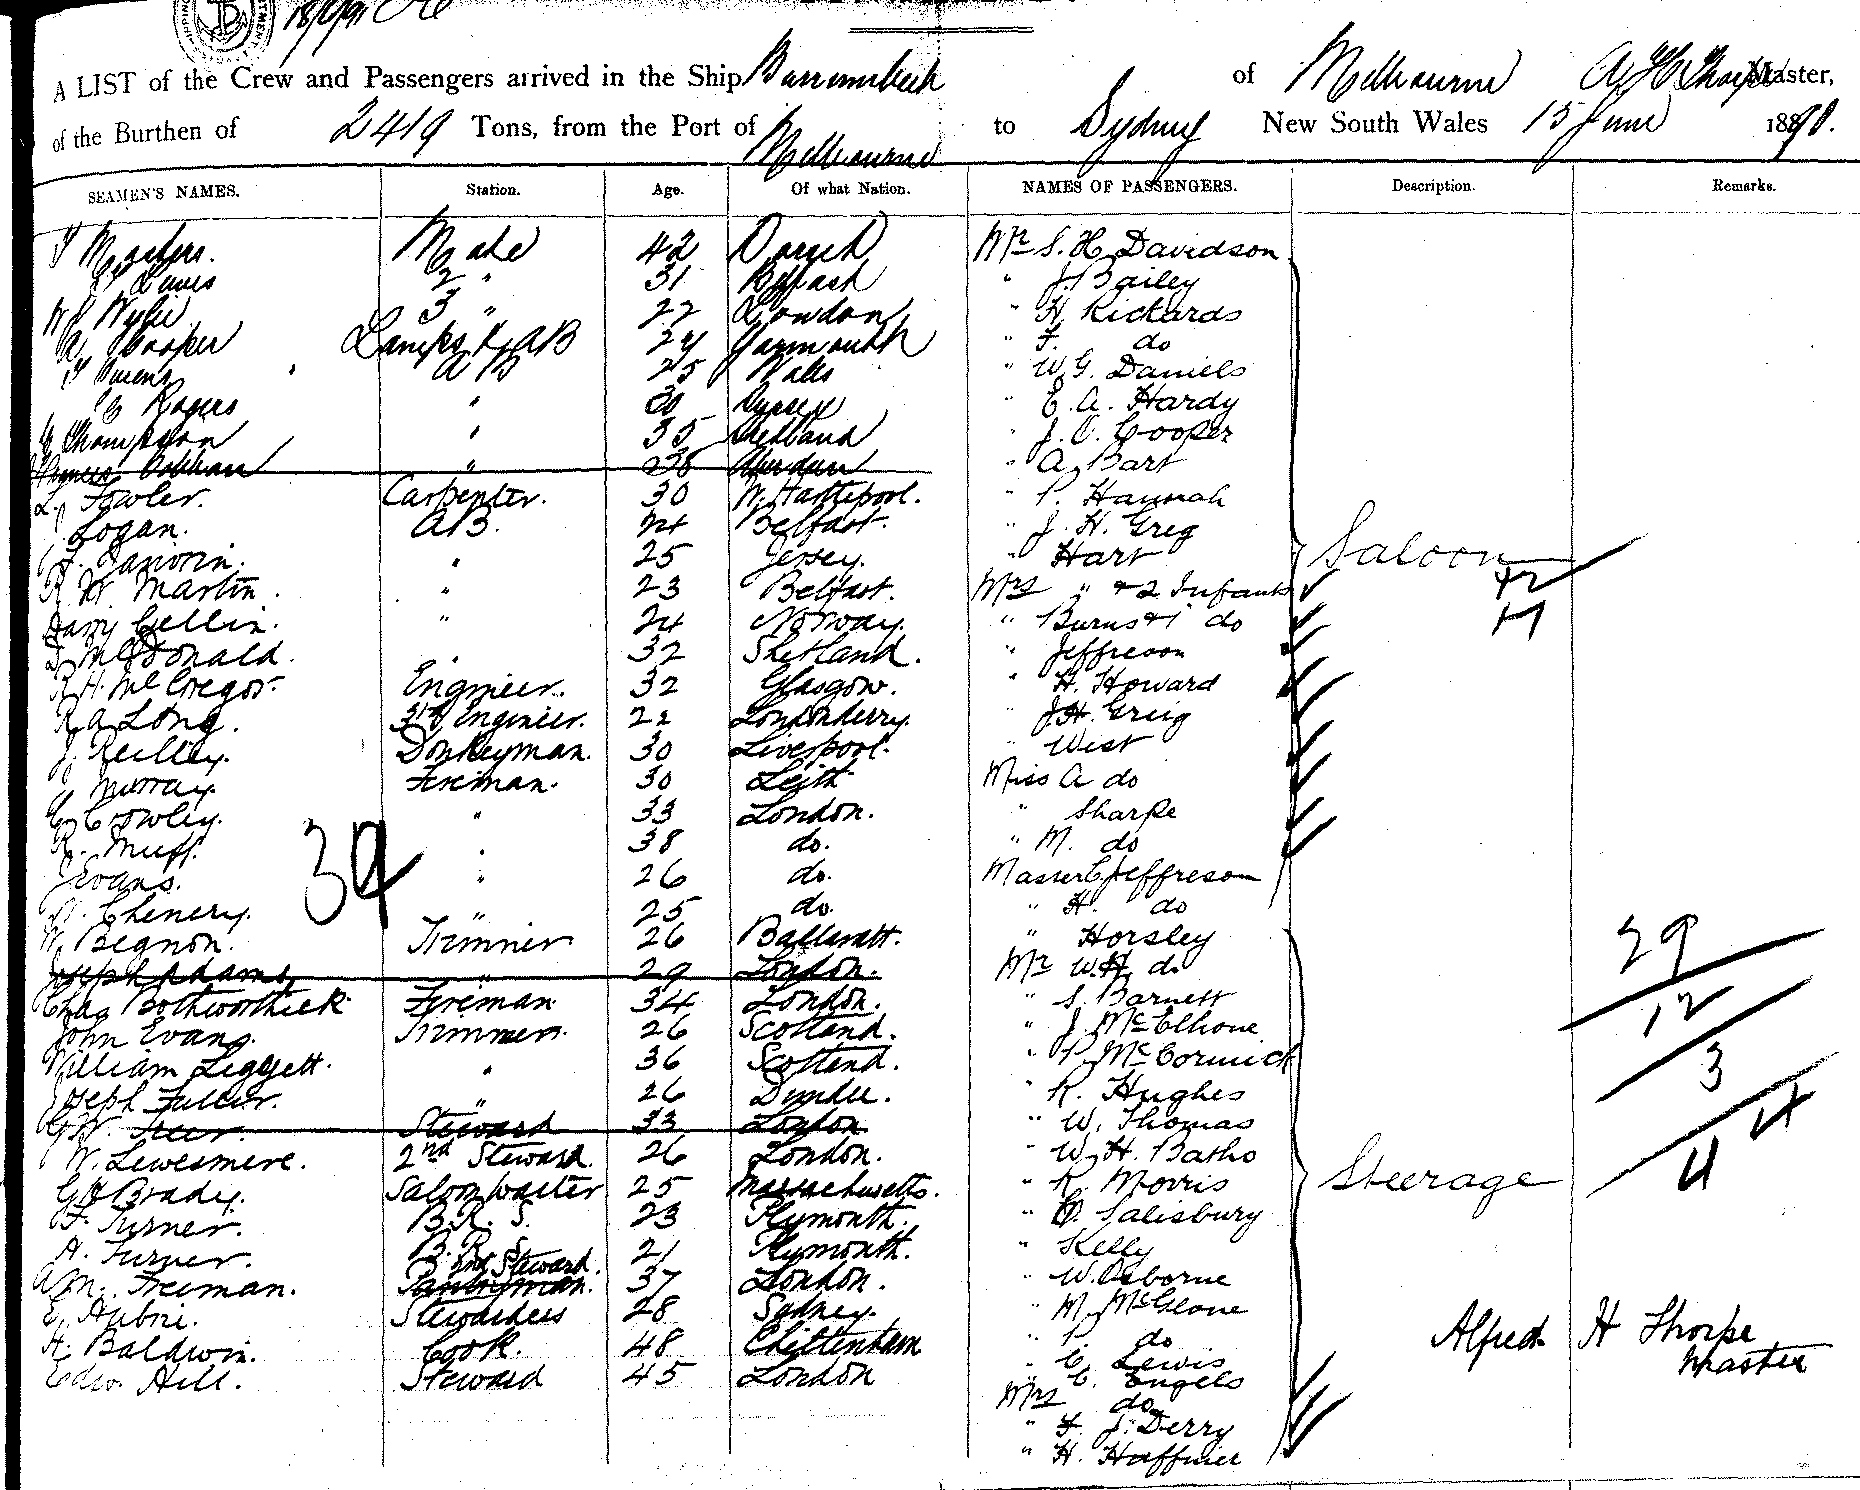 A LIST of the Crew and Passengers arrived in the Ship Burrumbeet of Melbourne A H Thorpe Master,
of the Burthen of 2419 Tons, from the Port of Melbourne to Sydney New South Wales 15 June 1890.
SEAMEN'S NAMES. Station. Age. Of what Nation. NAMES OF PASSENGERS. Description. Remarks.
Masters. Mate 42 Mr S. H. Davidson
2 " 31 Belfast " J. Bailey
Wylie 3 " 22 London " H. Rickards
A. Cooper Lamps & AB 24 Yarmouth " F. do
Owens AB 25 Wales " W. G. Daniels
Rogers " 30 Sussex " E. A. Hardy
Thompson " 35 Shetland " J. C. Cooper
" 38 Aberdeen " A. Bart
L. Fowler. Carpenter. 30 W. Hartlepool. " P. Hannah
Logan. AB. 24 Belfast. " J. H. Greig
25 Jersey. " Hart
R. W. Martin. " 23 Belfast. Mrs " & 2 Infants
Harry Gellin. " 24 Norway. " Burns & 1 do
McDonald. " 32 Shetland. " Jeffreson
R. H. McGregor. Engineer. 32 Glasgow. " H. Howard
R. A. Long. 3rd Engineer. 22 Londonderry. " J. H. Greig
J. Reilley. Donkeyman. 30 Liverpool. " West
Murray. Fireman. 30 Leith Miss A do
Crowley. " 33 London. " Sharpe
R. Muff. " 38 do. " M. do
Evans. " 26 do. Master C Jeffreson
Chenery. " 25 do. " H. do
W. Begnon. Trimmer 26 Ballaratt. " Horsley
Joseph Adams " 29 London. Mr W H. do
Chas Bothworthick Fireman 34 London. " S. Barnett
John Evans. Trimmer. 26 Scotland. " J. McElhone
William Leggett. " 36 Scotland. " P. McCormick
Joseph Fuller. " 26 Dundee. " R. Hughes
G W. Steward 33 London " W. Thomas
W. Lewesmere. 2nd Steward. 26 London. " W. H. Batho
G H Brady. Saloon Waiter 25 Massachusetts. " R. Morris
F. Turner. B. R. S. 23 Plymouth. " Salisbury
A. Turner. B. R. S. 21 Plymouth. " Kelly
A M. Freeman. Pantryman. 2nd Steward. 37 London. " W. Osborne
E. Aubrie. Stewardess 28 Sydney. " M. McGlone
H. Baldwin. Cook. 48 Chittenham " P. do
Edw. Hill. Steward 45 London " C. Lewis
" C. Engels
Mrs do
" F. J. Derry
" H. Haffner
Saloon
42
11
34
29
12
3
Steerage
Alfred H Thorpe
Master